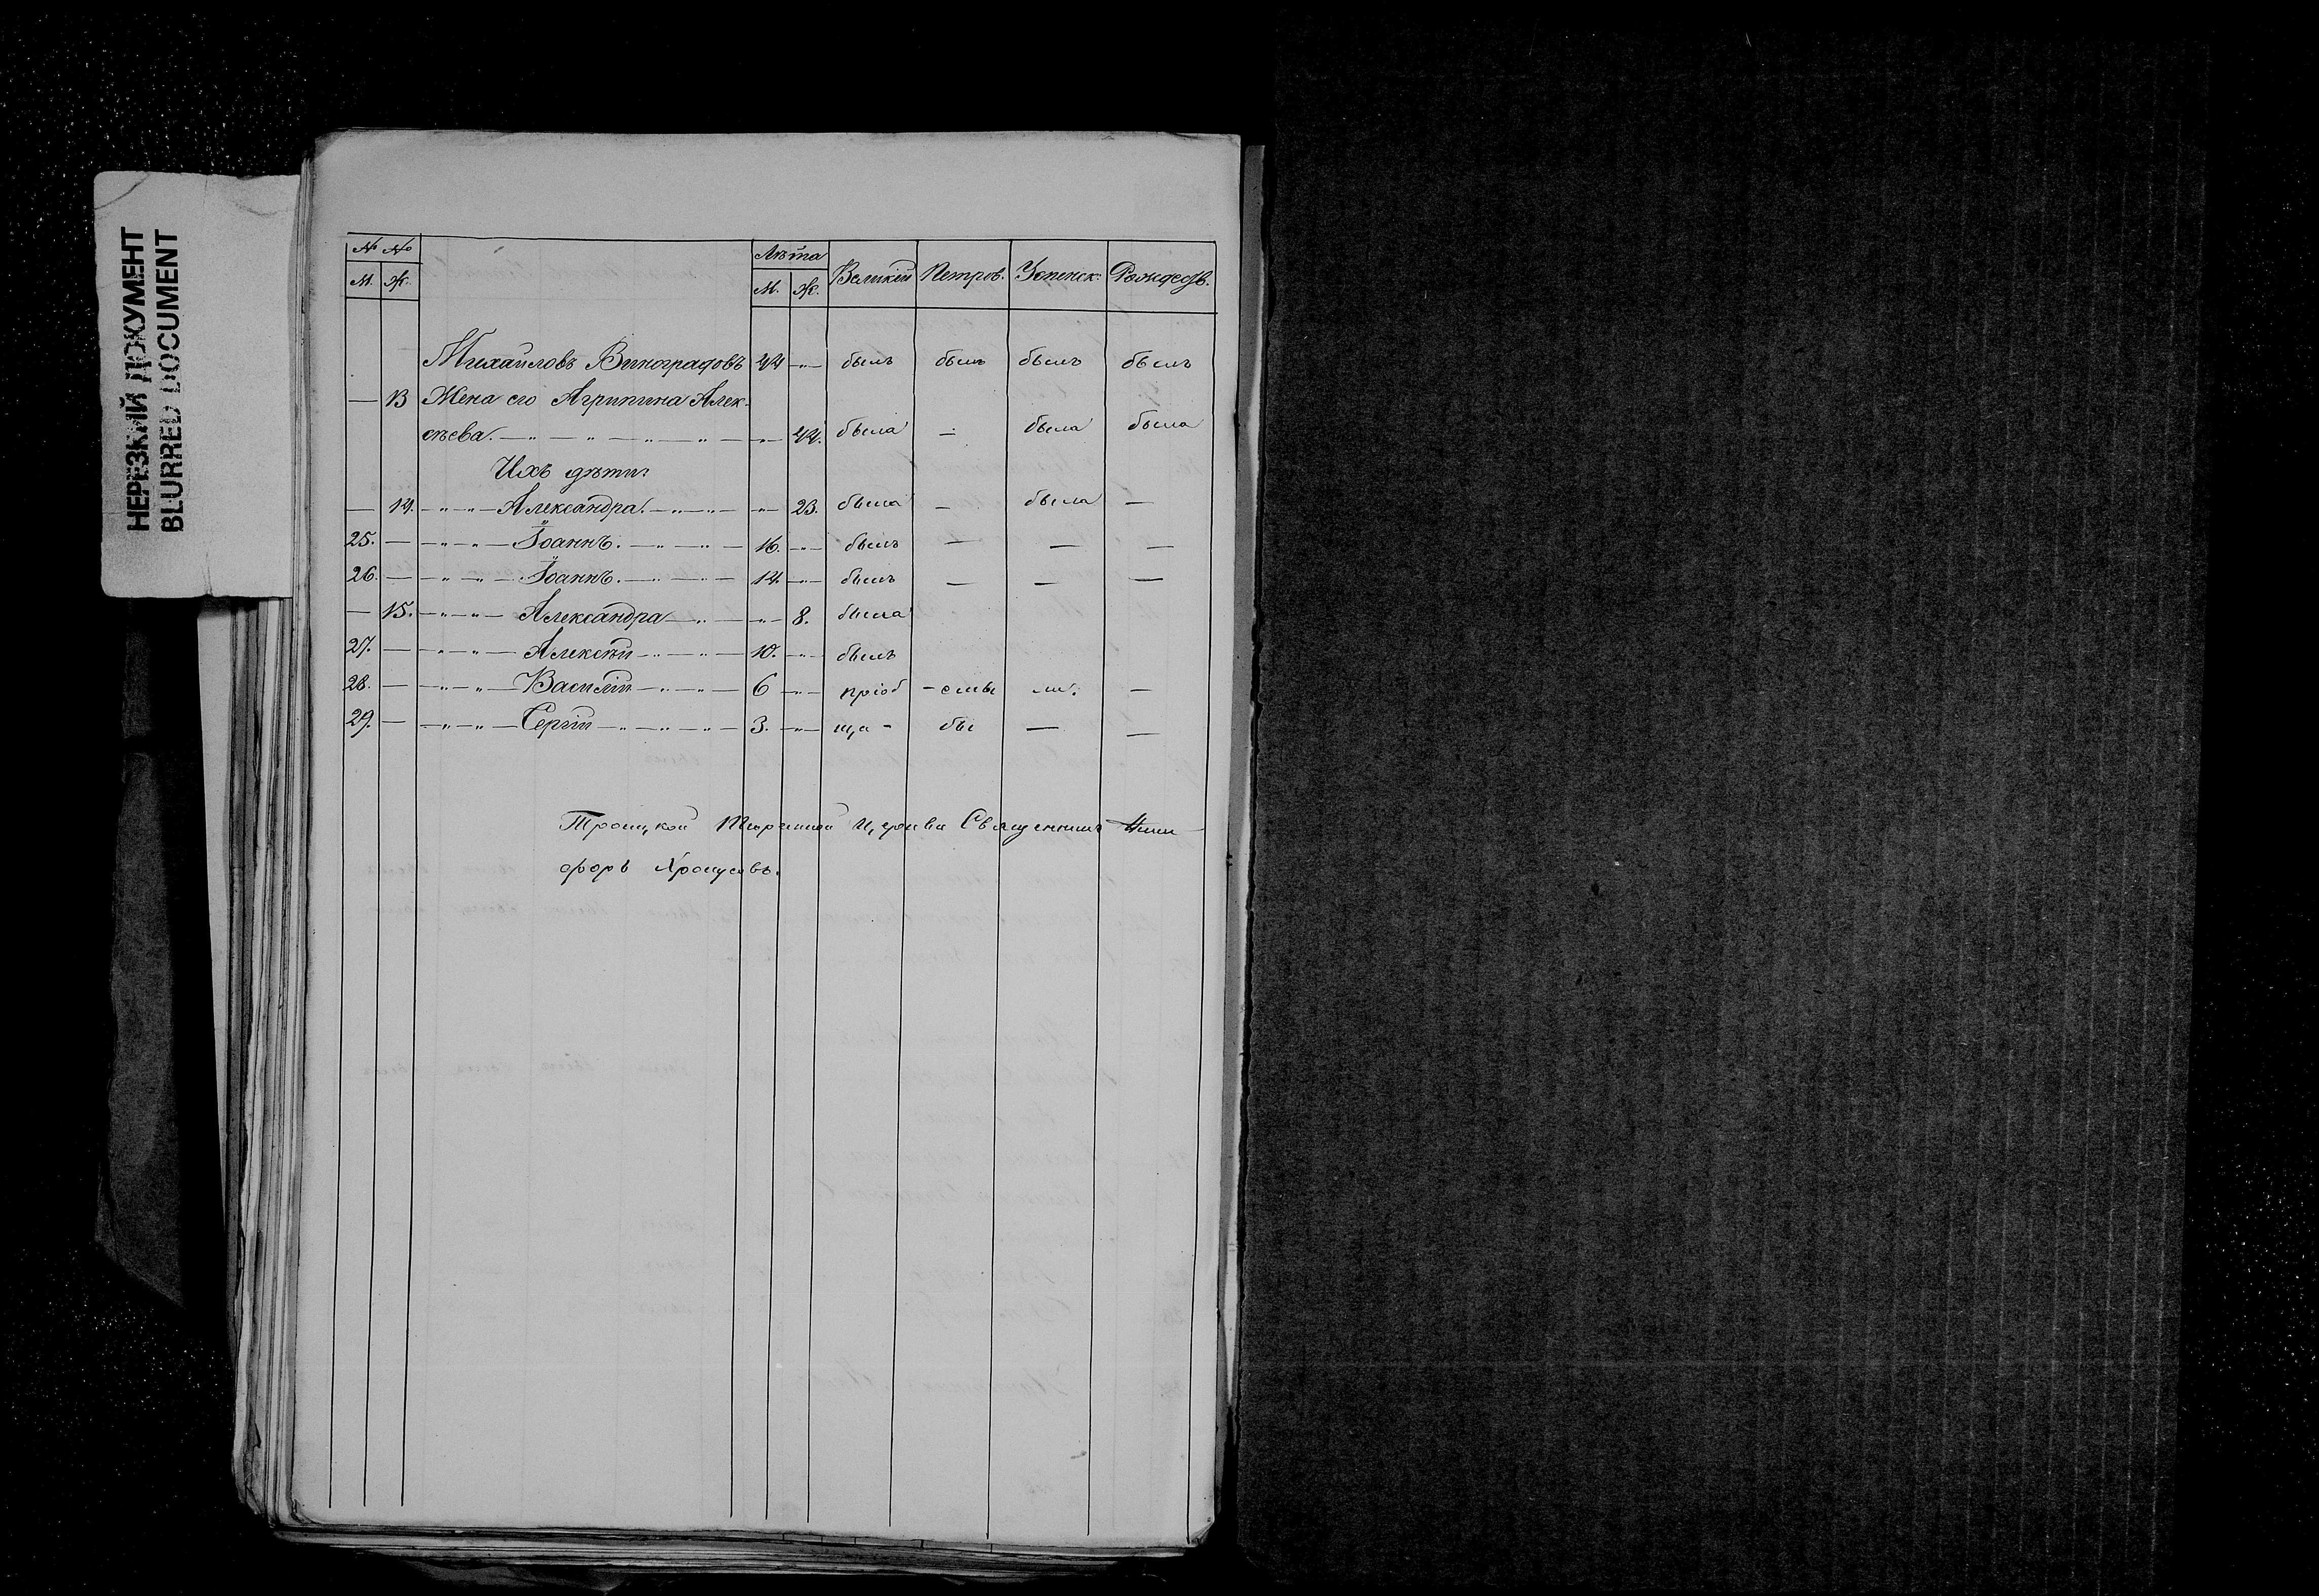 НЕРЕЗКИЙ ДОКУМЕНТ
BLURRED DOCUMENT
№ № Лѣта Великій Петров. Успенск. Рождеств.
М. Ж. М. Ж.
Михайловъ Виноградовъ 44 — былъ былъ былъ былъ
— 13 Жена его Агрипина Алек-
сѣева. — " — " — " — " — 42. была — была была
Ихъ дѣти:
— 14. — " — " — Александра. — " — " — " — 23. была — была —
25. — — " — " — Іоаннъ. — " — " — 16. — " — былъ — — —
26. — — " — " — Іоаннъ. — " — " — 14. — " — былъ — — —
— 15. — " — " — Александра — " — — " — 8. была
27. — — " — " — Алексѣй — " — " — 10. — " — былъ
28. — — " — " — Василій — " — " — 6 — " — пріоб - — —
29. — — " — " — Сергій — " — " — " — 3. — " — ща - бы — —
Троицкой Тюремной Церкви Священникъ Ники-
форъ